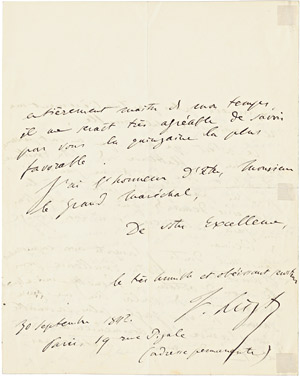 entièrement maître de mon temps,
il me serait très agréable de savoir
par vous la quinzaine la plus
favorable.
J'ai l'honneur d'être, Monsieur
le grand Maréchal,
De votre Excellence,
le très humble et obéissant
F. Liszt
30 septembre 1842.
Paris, 19 rue Pigale
(adresse permanente)